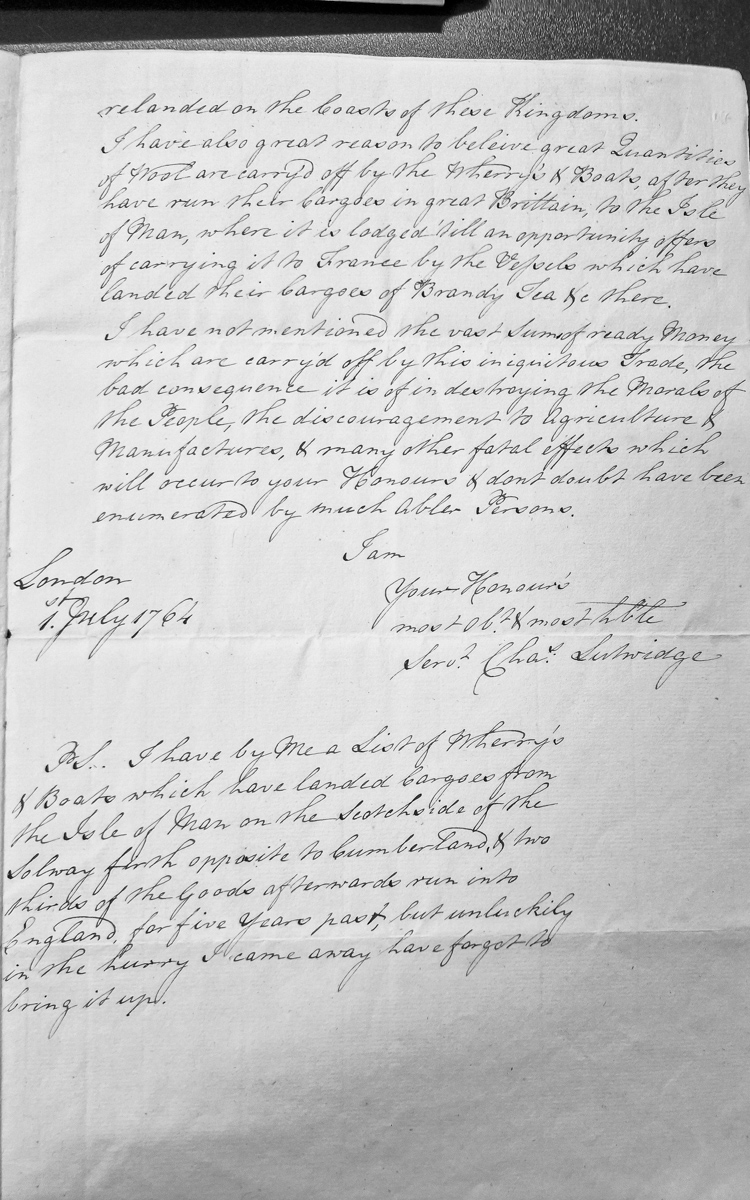 relanded on the Coasts of these Kingdoms.
I have also great reason to beleive great Quantities
of Wool are carry'd off by the Wherry's & Boats, after they
have run their Cargoes in great Brittain, to the Isle
of Man, where it is lodged 'till an opportunity offers
of carrying it to France by the Vessels which have
landed their Cargoes of Brandy Tea &c there.
I have not mentioned the vast Sums of ready Money
which are carry'd off by this iniquitous Trade, the
bad consequence it is of in destroying the Morals of
the People, the discouragement to Agriculture &
Manufactures, & many other fatal effects which
will occur to your Honours & dont doubt have been
enumerated by much Abler Persons.
I am
Your Honour's
most Obt. & most hble
Servt. Chas. Lutwidge
London
1st. July 1764
P.S.. I have by Me a List of Wherry's
& Boats which have landed Cargoes from
the Isle of Man on the Scotch side of the
Solway firth opposite to Cumberland, & two
thirds of the Goods afterwards run into
England, for five Years past, but unluckily
in the hurry I came away have forgot to
bring it up.